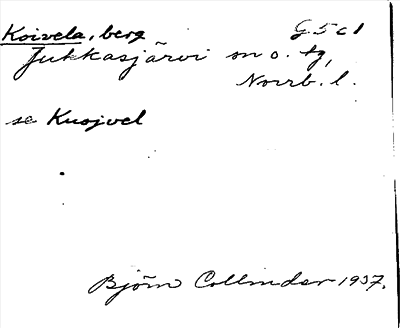 Koivela, berg G 5 c 1
Jukkasjärvi sn o. tg,
Norrb. l.
se Kuojvel
Björn Collinder 1937.